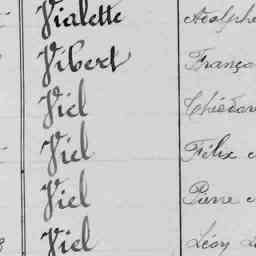 Vialette Adolphe
Vibert Franço
Viel Théodor
Viel Félix
Viel Pierre
Viel Léon